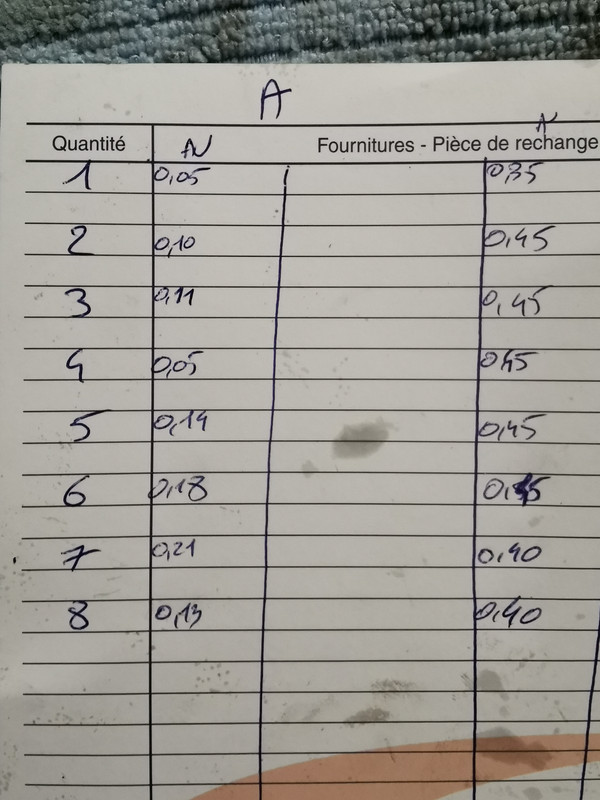 A
Quantité N Fournitures - Pièce de rechange
1 0,05 0,35
2 0,10 0,45
3 0,11 0,45
4 0,05 0,45
5 0,14 0,45
6 0,18
7 0,21 0,40
8 0,13 0,40